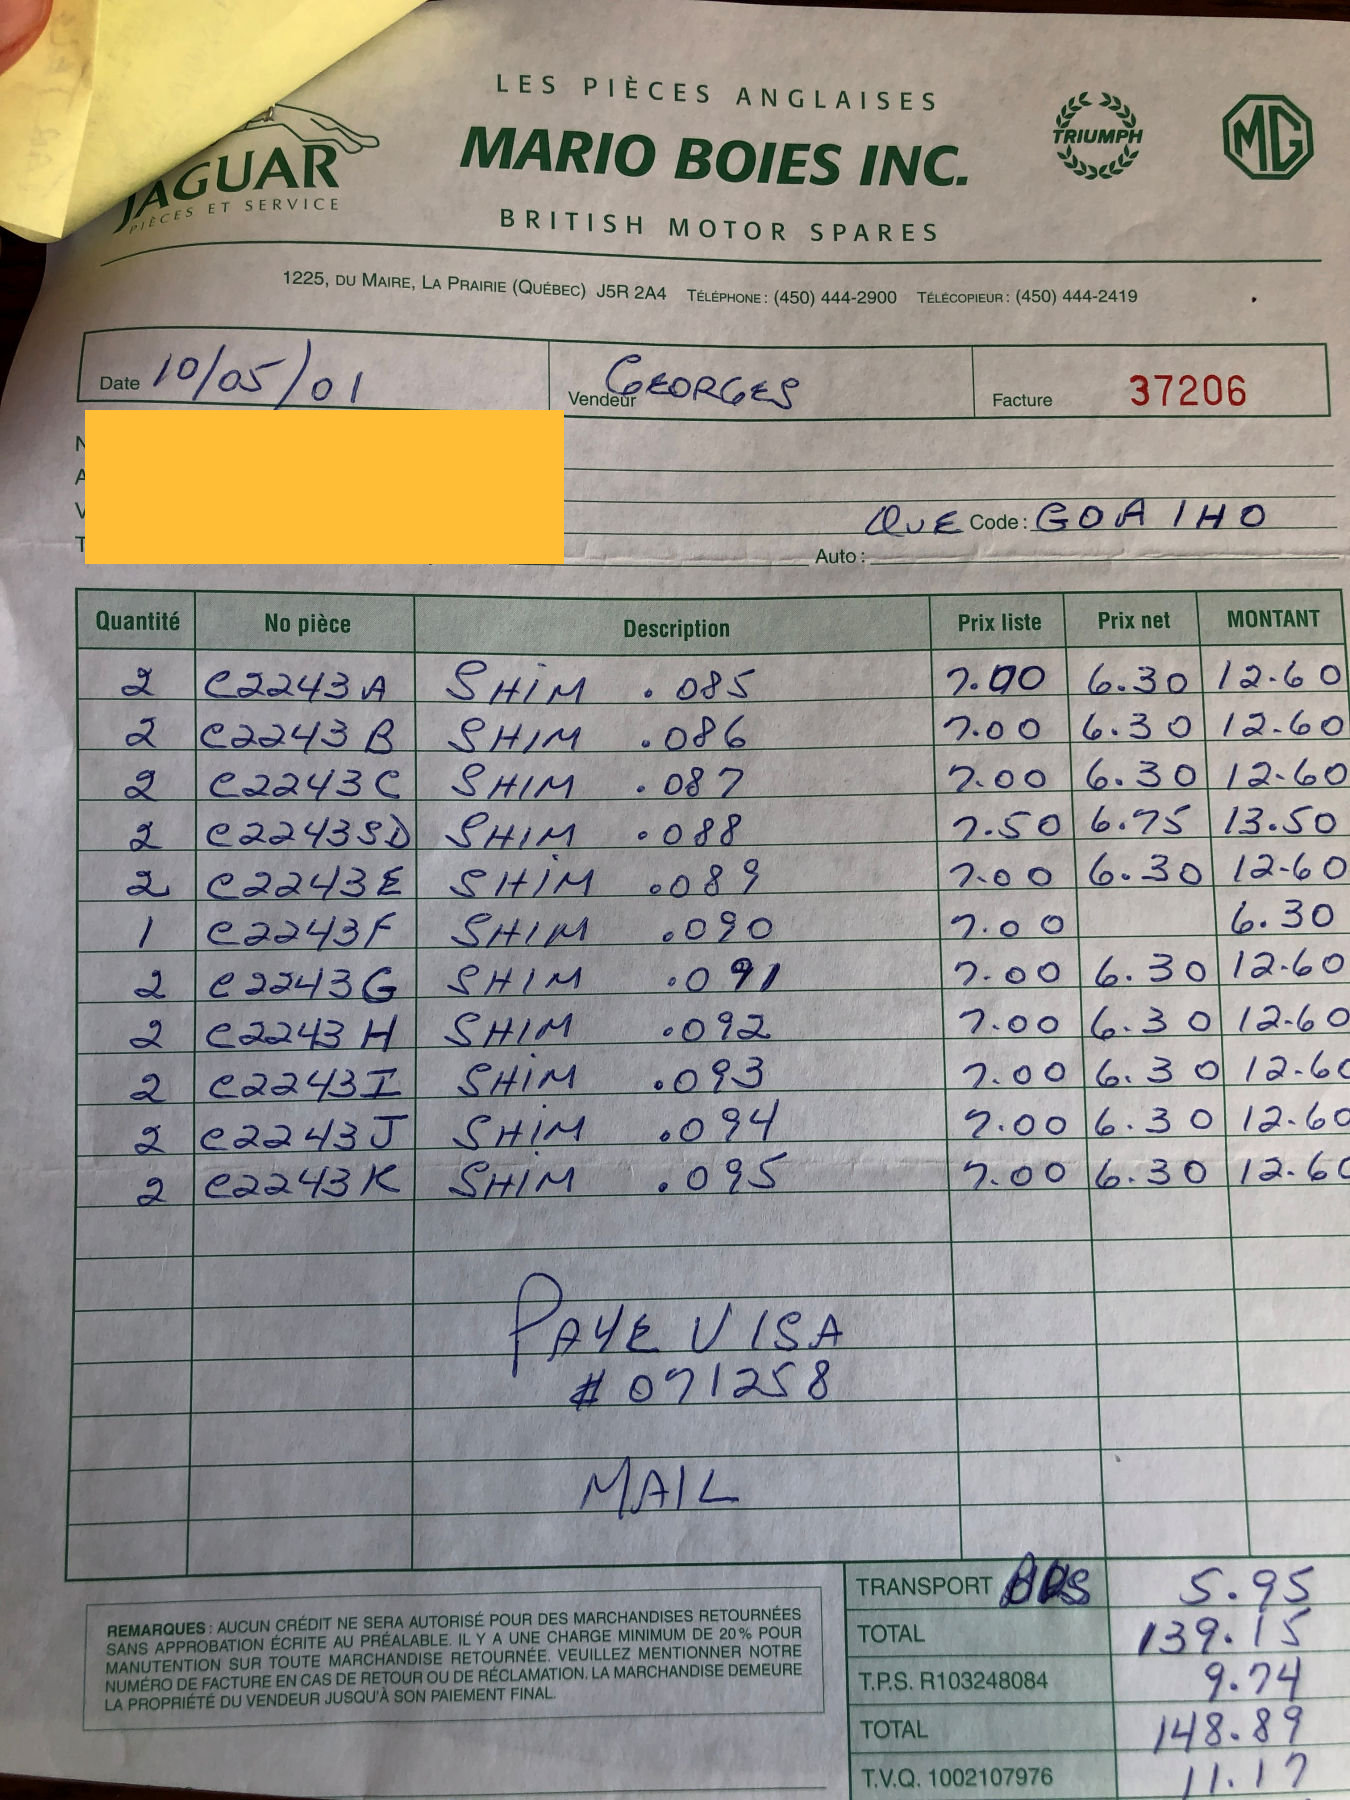 LES PIÈCES ANGLAISES
MARIO BOIES INC.
BRITISH MOTOR SPARES
JAGUAR
PIÈCES ET SERVICE
TRIUMPH
MG
1225, DU MAIRE, LA PRAIRIE (QUÉBEC) J5R 2A4 TÉLÉPHONE : (450) 444-2900 TÉLÉCOPIEUR : (450) 444-2419
Date 10/05/01 Vendeur GEORGES Facture 37206
N
A
V QUE Code : G0A 1H0
T Auto :
Quantité No pièce Description Prix liste Prix net MONTANT
2 C2243A SHIM .085 7.00 6.30 12.60
2 C2243B SHIM .086 7.00 6.30 12.60
2 C2243C SHIM .087 7.00 6.30 12.60
2 C2243SD SHIM .088 7.50 6.75 13.50
2 C2243E SHIM .089 7.00 6.30 12.60
1 C2243F SHIM .090 7.00 6.30
2 C2243G SHIM .091 7.00 6.30 12.60
2 C2243H SHIM .092 7.00 6.30 12.60
2 C2243I SHIM .093 7.00 6.30 12.60
2 C2243J SHIM .094 7.00 6.30 12.60
2 C2243K SHIM .095 7.00 6.30 12.60
PAYE VISA
# 071258
MAIL
TRANSPORT 5.95
TOTAL 139.15
T.P.S. R103248084 9.74
TOTAL 148.89
T.V.Q. 1002107976 11.17
REMARQUES : AUCUN CRÉDIT NE SERA AUTORISÉ POUR DES MARCHANDISES RETOURNÉES
SANS APPROBATION ÉCRITE AU PRÉALABLE. IL Y A UNE CHARGE MINIMUM DE 20% POUR
MANUTENTION SUR TOUTE MARCHANDISE RETOURNÉE. VEUILLEZ MENTIONNER NOTRE
NUMÉRO DE FACTURE EN CAS DE RETOUR OU DE RÉCLAMATION. LA MARCHANDISE DEMEURE
LA PROPRIÉTÉ DU VENDEUR JUSQU'À SON PAIEMENT FINAL.